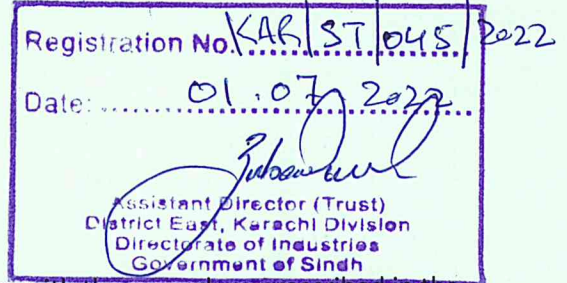 Registration No. KAR/ST/045/2022
Date: 01.07.2022
Assistant Director (Trust)
District East, Karachi Division
Directorate of Industries
Government of Sindh